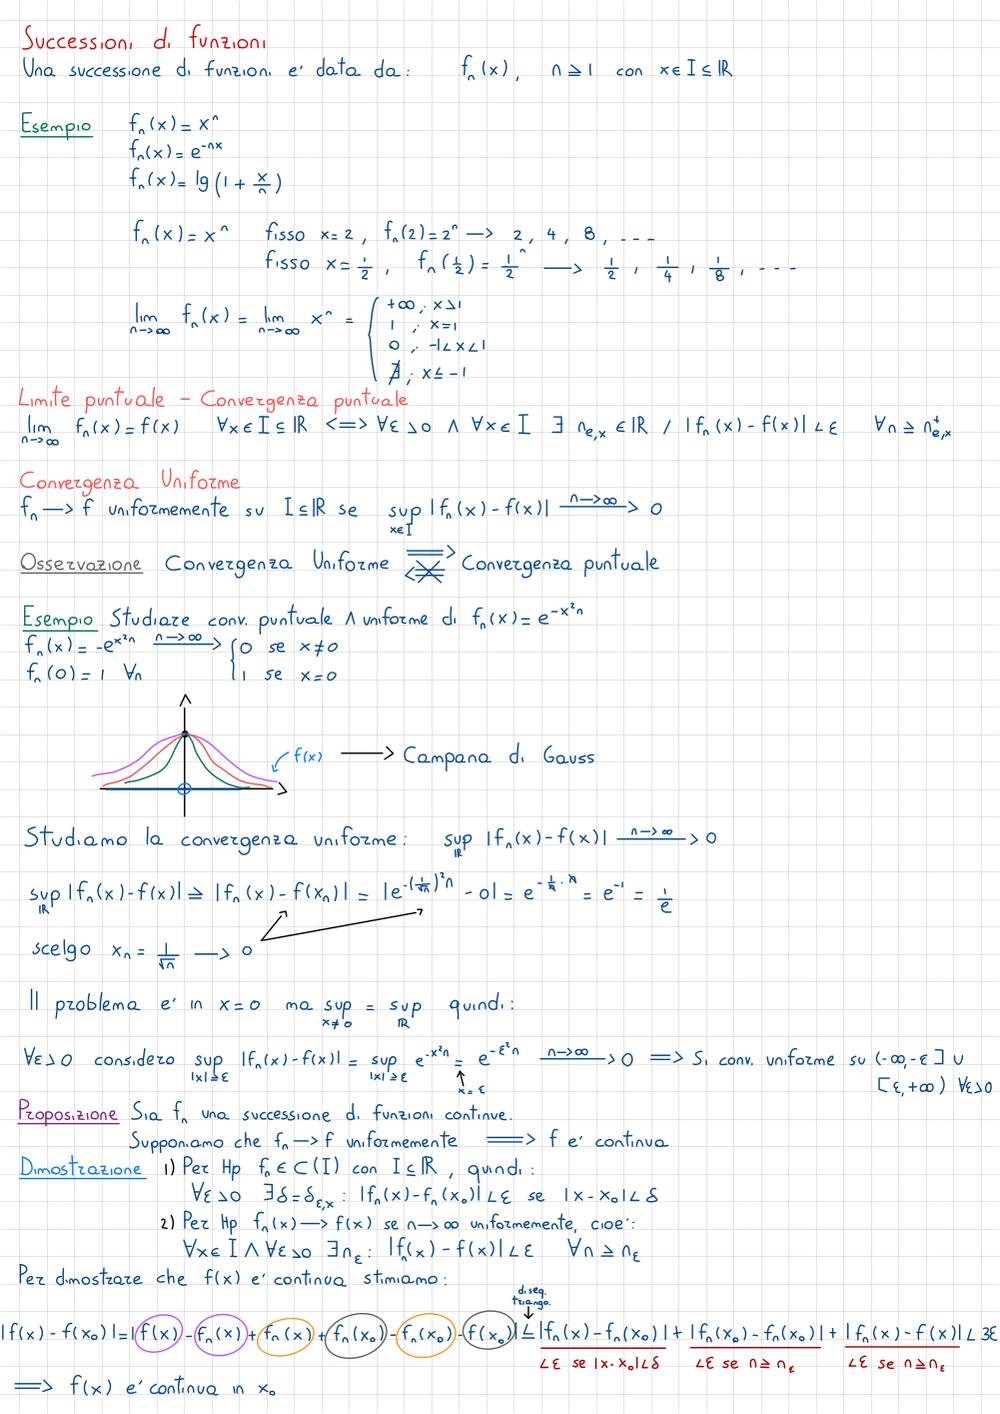 Successioni di funzioni
Una successione di funzioni e' data da: fₙ(x), n ≥ 1 con x∈I⊆ℝ
Esempio fₙ(x) = xⁿ
fₙ(x) = e^(-nx)
fₙ(x) = lg(1 + x/n)
fₙ(x) = xⁿ fisso x=2, fₙ(2)=2ⁿ → 2, 4, 8, ---
fisso x=1/2, fₙ(1/2) = 1/2ⁿ → 1/2, 1/4, 1/8, ---
lim n→∞ fₙ(x) = lim n→∞ xⁿ = {
+∞ ; x>1
1 ; x=1
0 ; -1<x<1
∄ ; x≤-1
Limite puntuale - Convergenza puntuale
lim n→∞ fₙ(x) = f(x) ∀x∈I⊆ℝ <=> ∀ε>0 ∧ ∀x∈I ∃ n_ε,x ∈ℝ / |fₙ(x) - f(x)| < ε ∀n ≥ n⁺_ε,x
Convergenza Uniforme
fₙ → f uniformemente su I⊆ℝ se sup x∈I |fₙ(x) - f(x)| n→∞ → 0
Osservazione Convergenza Uniforme ⇒ ⇍ Convergenza puntuale
Esempio Studiare conv. puntuale ∧ uniforme di fₙ(x) = e^(-x²n)
fₙ(x) = -e^(x²n) n→∞ → { 0 se x≠0
fₙ(0) = 1 ∀n 1 se x=0
f(x) → Campana di Gauss
Studiamo la convergenza uniforme: sup ℝ |fₙ(x) - f(x)| n→∞ → 0
sup ℝ |fₙ(x) - f(x)| ≥ |fₙ(x) - f(xₙ)| = |e^(-(1/√n)²n) - 0| = e^(-1/n · n) = e⁻¹ = 1/e
scelgo xₙ = 1/√n → 0
Il problema e' in x=0 ma sup x≠0 = sup ℝ quindi:
∀ε>0 considero sup |x|≥ε |fₙ(x) - f(x)| = sup |x|≥ε e^(-x²n) = e^(-ε²n) n→∞ → 0 ⟹ Si conv. uniforme su (-∞,-ε] ∪
x=ε [ε,+∞) ∀ε>0
Proposizione Sia fₙ una successione di funzioni continue.
Supponiamo che fₙ → f uniformemente ⟹ f e' continua
Dimostrazione 1) Per Hp fₙ∈C(I) con I⊆ℝ, quindi:
∀ε>0 ∃δ=δ_ε,x : |fₙ(x) - fₙ(x₀)| < ε se |x-x₀| < δ
2) Per Hp fₙ(x) → f(x) se n→∞ uniformemente, cioe':
∀x∈I ∧ ∀ε>0 ∃n_ε : |fₙ(x) - f(x)| < ε ∀n ≥ n_ε
Per dimostrare che f(x) e' continua stimiamo:
diseq.
triango.
|f(x) - f(x₀)| = |f(x) - fₙ(x) + fₙ(x) + fₙ(x₀) - fₙ(x₀) - f(x₀)| ≤ |fₙ(x) - fₙ(x₀)| + |fₙ(x₀) - fₙ(x₀)| + |fₙ(x) - f(x)| < 3ε
<ε se |x-x₀|<δ <ε se n≥n_ε <ε se n≥n_ε
⟹ f(x) e' continua in x₀